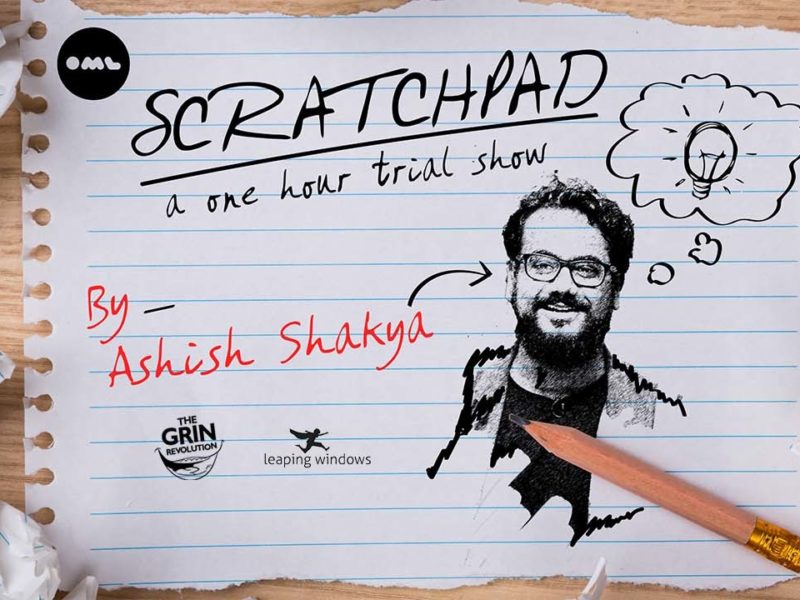 OML
SCRATCHPAD
a one hour trial show
By —
Ashish Shakya
THE
GRIN
REVOLUTION
leaping windows